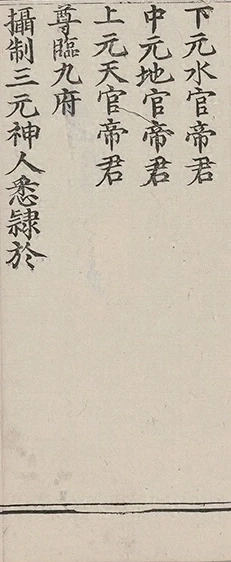 下元水官帝君
中元地官帝君
上元天官帝君
尊臨九府
攝制三元神人悉隸於